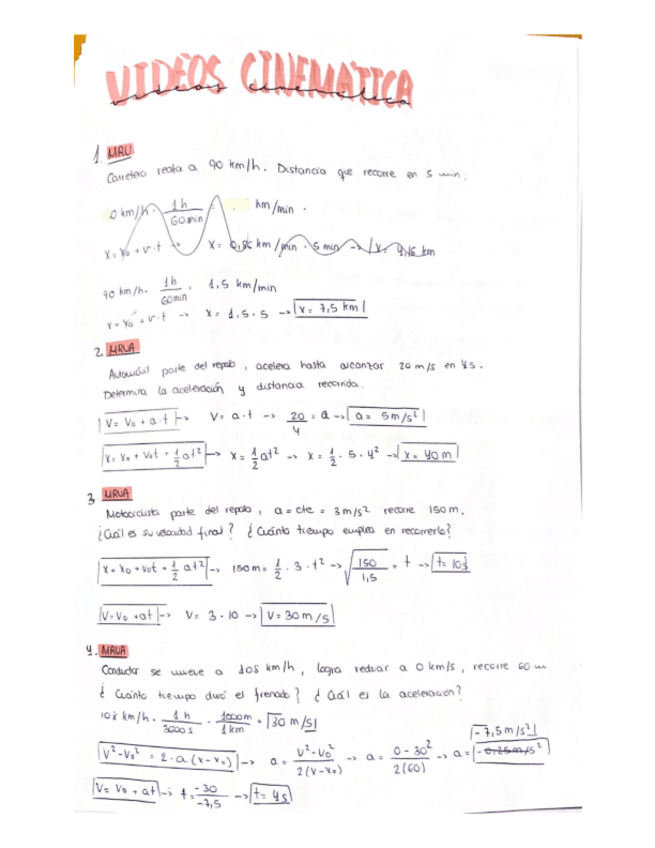 VIDEOS CINEMATICA
videos cinematica
1. MRU
Carretera recta a 90 km/h. Distancia que recorre en 5 min.
0 km/h · 1h / 60min = km/min.
x = x₀ + v·t -> x = 0,86 km/min · 5 min -> x = 4,16 km
90 km/h · 1h / 60min = 1,5 km/min
x = x₀ + v·t -> x = 1,5 · 5 -> x = 7,5 km
2. MRUA
Automóvil parte del repaso, acelera hasta alcanzar 20 m/s en 4s.
Determina la aceleración y distancia recorrida.
V = V₀ + a·t -> V = a·t -> 20/4 = a -> a = 5m/s²
x = x₀ + v₀t + 1/2 at² -> x = 1/2 at² -> x = 1/2 · 5 · 4² -> x = 40 m
3. MRUA
Motociclista parte del repaso, a = cte = 3 m/s² recorre 150 m.
¿Cuál es su velocidad final? ¿Cuánto tiempo emplea en recorrerlo?
x = x₀ + v₀t + 1/2 at² -> 150m = 1/2 · 3 · t² -> √150/1,5 = t -> t = 10s
V = V₀ + at -> V = 3 · 10 -> V = 30 m/s
4. MRUA
Conductor se mueve a 108 km/h, logra reducir a 0 km/s, recorre 60 m
¿Cuánto tiempo duró el frenado? ¿Cuál es la aceleración?
108 km/h · 1h / 3600s · 1000m / 1km = 30 m/s
-7,5 m/s²
V² - V₀² = 2·a (x - x₀) -> a = V² - V₀² / 2(x - x₀) -> a = 0 - 30² / 2(60) -> a = -0,25m/s²
V = V₀ + at -> t = -30 / -7,5 -> t = 4s